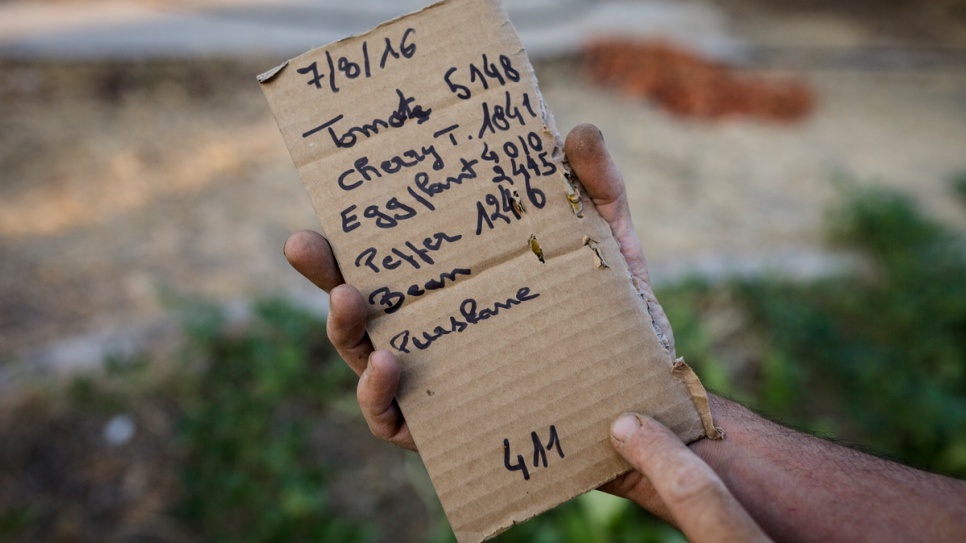 7/8/16
Tomato 5148
Cherry T. 1841
Eggplant 4010
Pepper 2445
Bean 1246
Purslane
411